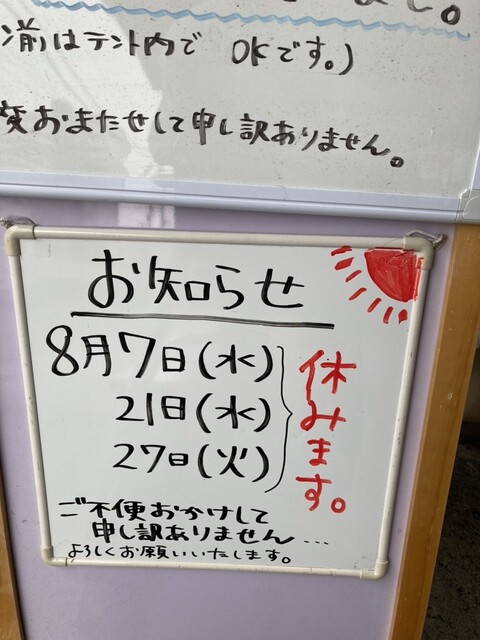 前はテント内で OKです。)
変おまたせして申し訳ありません。
お知らせ
8月7日(水)
21日(水)
27日(火)
休みます。
ご不便おかけして
申し訳ありません...
よろしくお願いいたします。